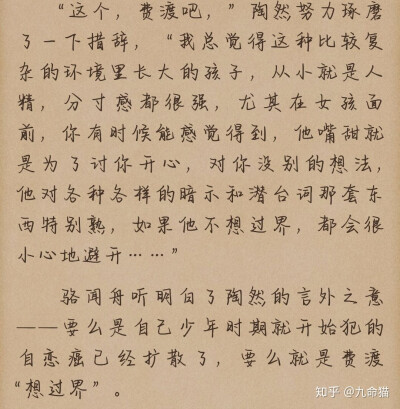 “这个，费渡吧，”陶然努力琢磨
了一下措辞，“我总觉得这种比较复
杂的环境里长大的孩子，从小就是人
精，分寸感都很强，尤其在女孩面
前，你有时候能感觉得到，他嘴甜就
是为了讨你开心，对你没别的想法，
他对各种各样的暗示和潜台词那套东
西特别熟，如果他不想过界，都会很
小心地避开……”
骆闻舟听明白了陶然的言外之意
——要么是自己少年时期就开始犯的
自恋癌已经扩散了，要么就是费渡
“想过界”。
知乎 @九命猫